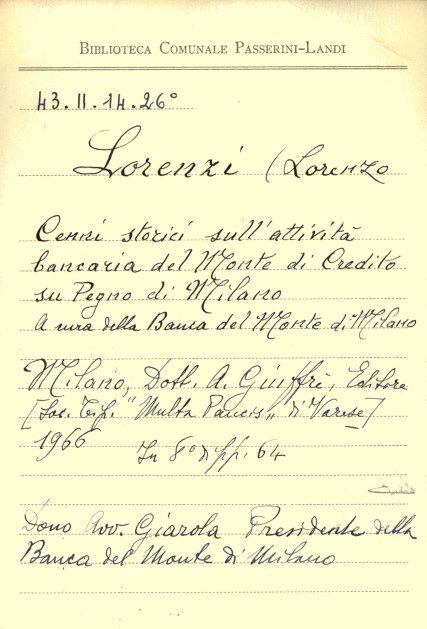 BIBLIOTECA COMUNALE PASSERINI-LANDI
43.II.14.26°
Lorenzi (Lorenzo
Cenni storici sull'attività
bancaria del Monte di Credito
su Pegno di Milano
A cura della Banca del Monte di Milano
Milano, Dott. A. Giuffrè, Editore
[Soc. Tip. "Multa Paucis" di Varese]
1966 In 8° di pp. 64
Dono Avv. Giarola Presidente della
Banca del Monte di Milano